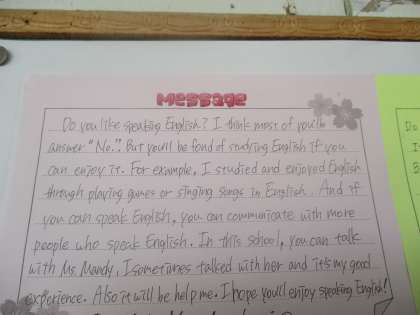 Message
Do you like speaking English? I think most of you'll
answer "No." But you'll be fond of studying English if you
can enjoy it. For example, I studied and enjoyed English
through playing games or singing songs in English. And if
you can speak English, you can communicate with more
people who speak English. In this school, you can talk
with Ms. Mandy. I sometimes talked with her and it's my good
experience. Also it will be help me. I hope you'll enjoy speaking English!
Do
I
B